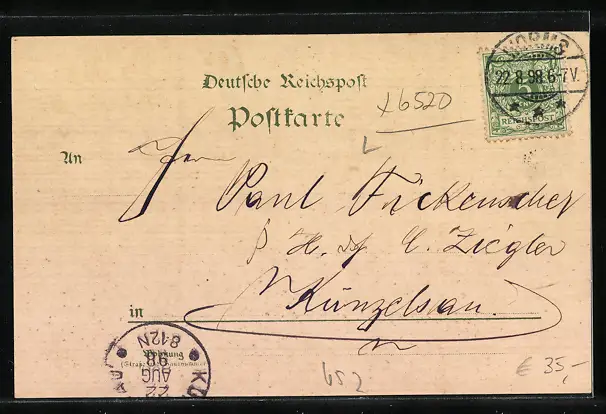 WORMS
22.8.98.6-7V.
5
REICHSPOST
Deutsche Reichspost
Postkarte
x6520
An
Herrn
Paul Fickenscher
H. C. Ziegler
in Künzelsau
KÜ
22
AUG
98
8-12N
Wohnung
(Straße und Hausnummer)
652
€ 35,-